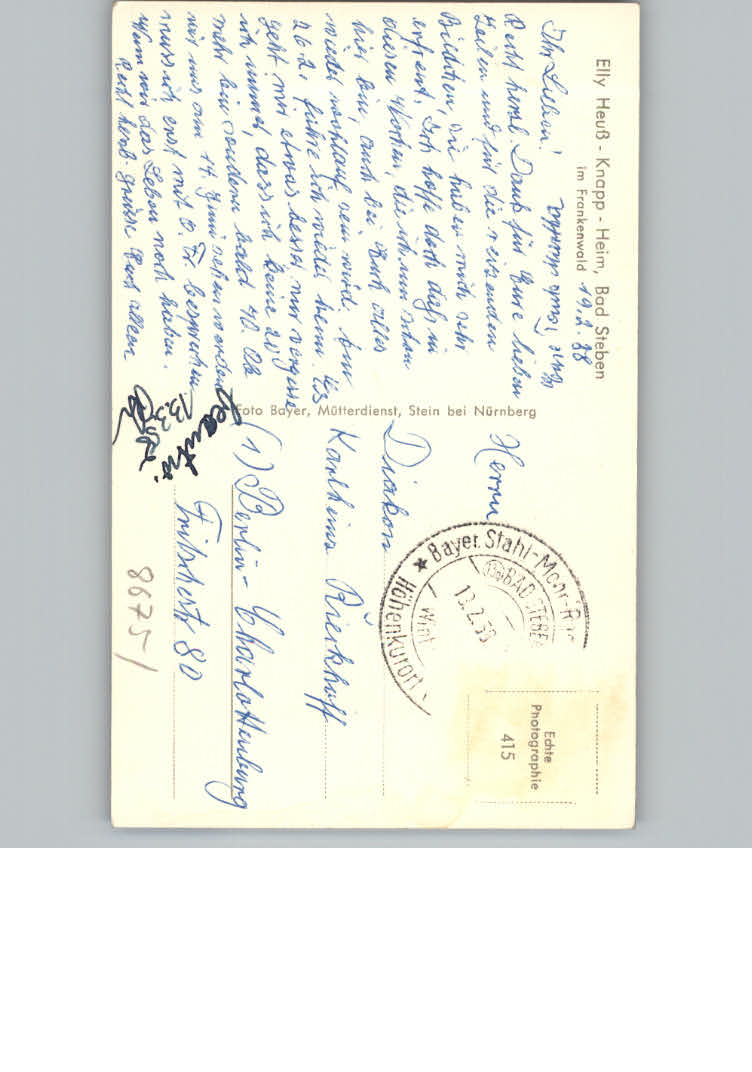 Elly Heuß - Knapp - Heim, Bad Steben
im Frankenwald
19.2.58
Ihr Lieben!
Recht herzl. Dank für Eure lieben
Zeilen und für die reizenden
Bildchen, sie haben mich sehr
erfreut. Ich hoffe doch daß in
diesen Wochen, die ich nun schon
hier bin, auch bei Euch alles
wieder wohlauf sein wird. Am
26.2. fahre ich wieder heim. Es
geht mir etwas besser nur vergesse
ich immer, dass ich keine 20
mehr bin sondern bald 40. Ob
wir uns am 14. Juni sehen werden
muss ich erst mit O. F. besprechen
Wenn wir das Leben noch haben.
Recht herzl. Grüsse Euch allen
Eure
Foto Bayer, Mütterdienst, Stein bei Nürnberg
13.3.
Herrn
Diakon
Karlheinz
(1) Berlin-Charlottenburg
Fritschestr 80
★ Bayer. Stahl-Moor-
BAD STEBEN
Höhenkurort
Echte
Photographie
415
8675/